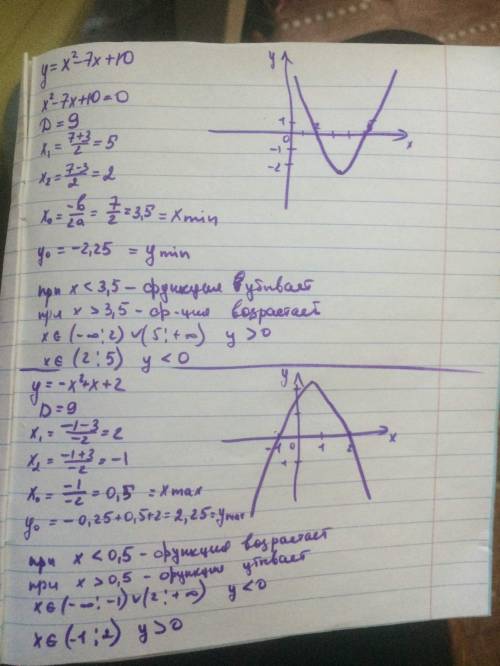 y = x² - 7x + 10
x² - 7x + 10 = 0
D = 9
x₁ = (7+3)/2 = 5
x₂ = (7-3)/2 = 2
x₀ = -b/2a = 7/2 = 3,5 = x min
y₀ = -2,25 = y min
при x < 3,5 - функция убывает
при x > 3,5 - ф-ция возрастает
x ∈ (-∞; 2) ∪ (5; +∞) y > 0
x ∈ (2; 5) y < 0
y
1
0
2
5
x
-1
-2
y = -x² + x + 2
D = 9
x₁ = (-1-3)/-2 = 2
x₂ = (-1+3)/-2 = -1
x₀ = -1/-2 = 0,5 = x max
y₀ = -0,25 + 0,5 + 2 = 2,25 = y max
при x < 0,5 - функция возрастает
при x > 0,5 - функция убывает
x ∈ (-∞; -1) ∪ (2; +∞) y < 0
x ∈ (-1; 2) y > 0
y
-1
0
1
2
x